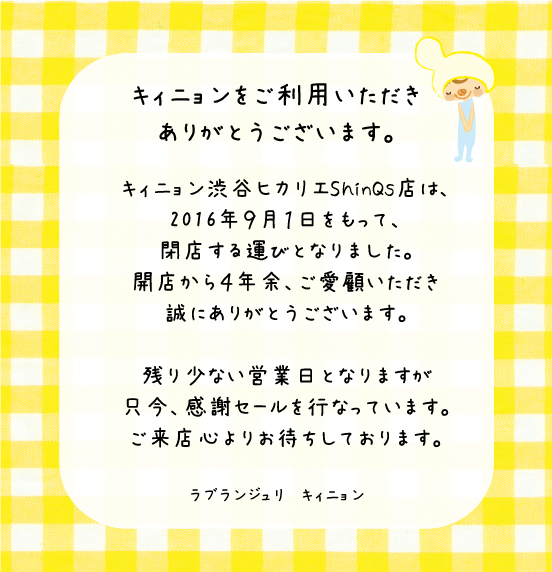 キィニョンをご利用いただき
ありがとうございます。
キィニョン渋谷ヒカリエShinQs店は、
2016年9月1日をもって、
閉店する運びとなりました。
開店から4年余、ご愛顧いただき
誠にありがとうございます。
残り少ない営業日となりますが
只今、感謝セールを行なっています。
ご来店心よりお待ちしております。
ラブランジュリ　キィニョン